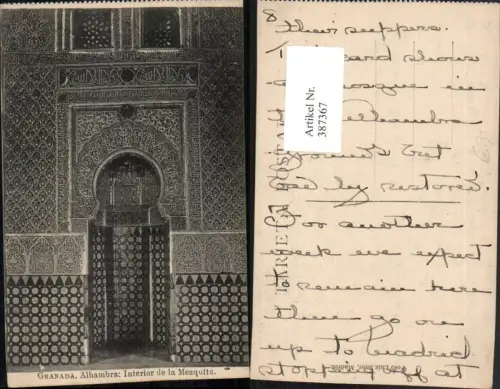 GRANADA. Alhambra: Interior de la Mezquita.
8
their suppers.
card shows
mosque in
Alhambra
grounds but
bad by restored.
For another
week we expect
to remain here
then go on
up to Madrid
stopping off at
Artikel Nr.
387367
TARJETA POSTAL
Madrid